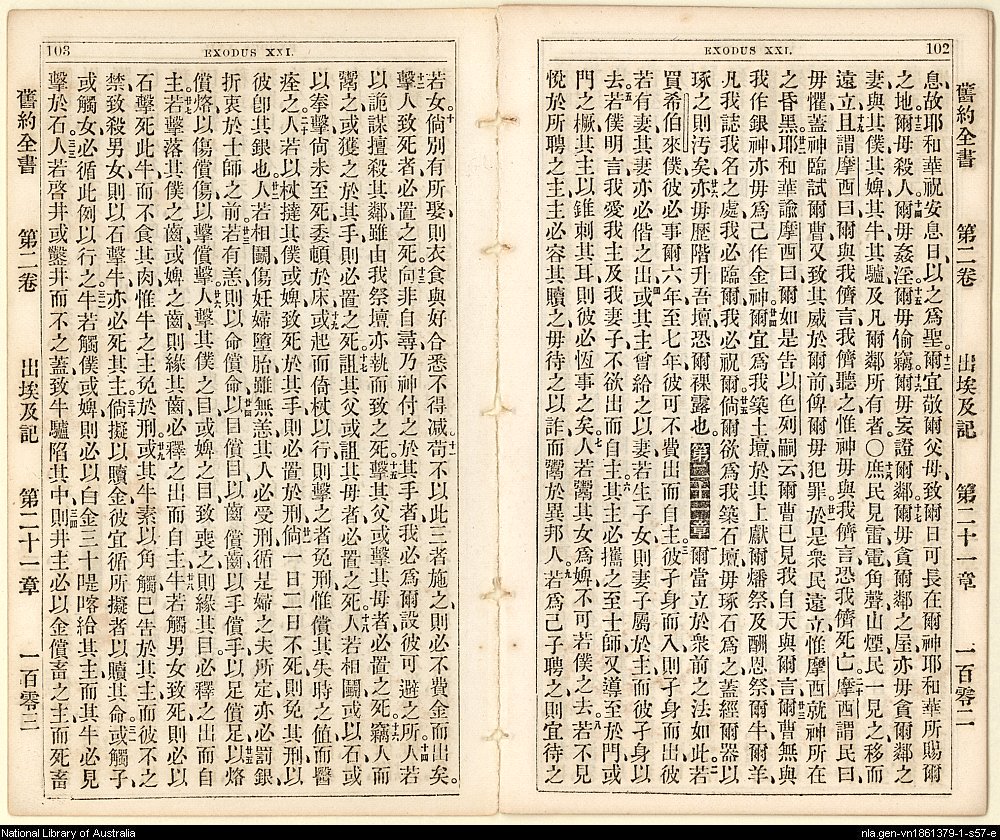 102
EXODUS XXI.
舊約全書 第二卷 出埃及記 第二十一章 一百零二
息、故耶和華祝安息日、以之爲聖。十二爾宜敬爾父母、致爾日可長在爾神耶和華所賜爾
之地。十三爾毋殺人。十四爾毋姦淫。十五爾毋偷竊。十六爾毋妄證爾鄰。十七爾毋貪爾鄰之屋、亦毋貪爾鄰之
妻、與其僕、其婢、其牛、其驢、及凡爾鄰所有者。○十八庶民見雷電角聲山煙、民一見之、移而
遠立、十九且謂摩西曰、爾與我儕言、我儕聽之、惟神毋與我儕言、恐我儕死亡。二十摩西謂民曰、
毋懼、蓋神臨試爾曹、又致其威於爾前、俾爾毋犯罪。廿一於是衆民遠立、惟摩西就神所在
之昏黑。廿二耶和華諭摩西曰、爾如是告以色列嗣云、爾曹已見我自天與爾言。廿三爾曹無與
我作銀神、亦毋爲己作金神。廿四爾宜爲我築土壇、於其上獻爾燔祭、及酬恩祭、爾牛爾羊、
凡我誌我名之處、我必臨爾、我必祝爾。廿五倘爾欲爲我築石壇、毋琢石爲之、蓋經爾器以
琢之、則污矣。廿六亦毋歷階升吾壇、恐爾裸露也。第二十一章 爾當立於衆前之法如此。二若
買希伯來僕、彼必事爾六年、至七年彼可不費出而自主。三彼孑身而入、則孑身而出、彼
若有妻、其妻亦必偕之出。四或其主曾給之以妻、若生子女、則妻子屬於主、而彼孑身以
去。五若僕明言、我愛我主、及我妻子、不欲出而自主。六其主必攜之至士師、又導至於門、或
門之橛、其主以錐刺其耳、則彼必恆事之矣。七人若鬻其女爲婢、不可若僕之去。八若不見
悅於所聘之主、主必容其贖之、毋待之以詐、而鬻於異邦人。九若爲己子聘之、則宜待之
103
EXODUS XXI.
若女。十倘別有所娶、則衣食與好合、悉不得减。十一苟不以此三者施之、則必不費金而出矣。
十二擊人致死者、必置之死。十三向非自尋、乃神付之於其手者、我必爲爾設彼可避之所。十四人若
以詭謀擅殺其鄰、雖由我祭壇、亦執而致之死。十五擊其父、或擊其母者、必置之死。十六竊人而
鬻之、或獲之於其手、則必置之死。十七詛其父、或詛其母者、必置之死。十八人若相鬭、或以石、或
以拳擊、尙未至死、委頓於床。十九或起而倚杖以行、則擊之者免刑、惟償其失時之値、而醫
痊之。二十人若以杖撻其僕或婢、致死於其手、則必置於刑。廿一倘一日二日不死、則免其刑、以
彼卽其銀也。廿二人若相鬭、傷妊婦、墮胎雖無恙、其人必受刑、循是婦之夫所定、亦必罰銀
折衷於士師之前。廿三若有恙、則以命償命、廿四以目償目、以齒償齒、以手償手、以足償足、廿五以烙
償烙、以傷償傷、以擊償擊。廿六人擊其僕之目、或婢之目、致喪之、則緣其目、必釋之出而自
主。廿七若擊落其僕之齒、或婢之齒、則緣其齒、必釋之出而自主。廿八牛若觸男女致死、則必以
石擊死此牛、而不食其肉、惟牛之主免於刑。廿九或其牛素以角觸、已告於其主、而彼不之
禁、致殺男女、則以石擊牛、亦必死其主。三十倘擬以贖金、彼宜循所擬者、以贖其命。三一或觸子、
或觸女、必循此例以行之。三二牛若觸僕或婢、則必以白金三十㖷喀給其主、而其牛必見
擊於石。三三人若啓井、或鑿井而不之蓋、致牛驢陷其中、三四則井主必以金償畜之主、而死畜
舊約全書 第二卷 出埃及記 第二十一章 一百零三
National Library of Australia
nla.gen-vn1861379-1-s57-e